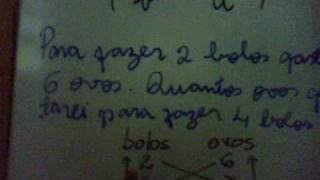 Para fazer 2 bolos
6 ovos. Quantos ovos
para fazer 4 bolos
bolos ovos
2 6